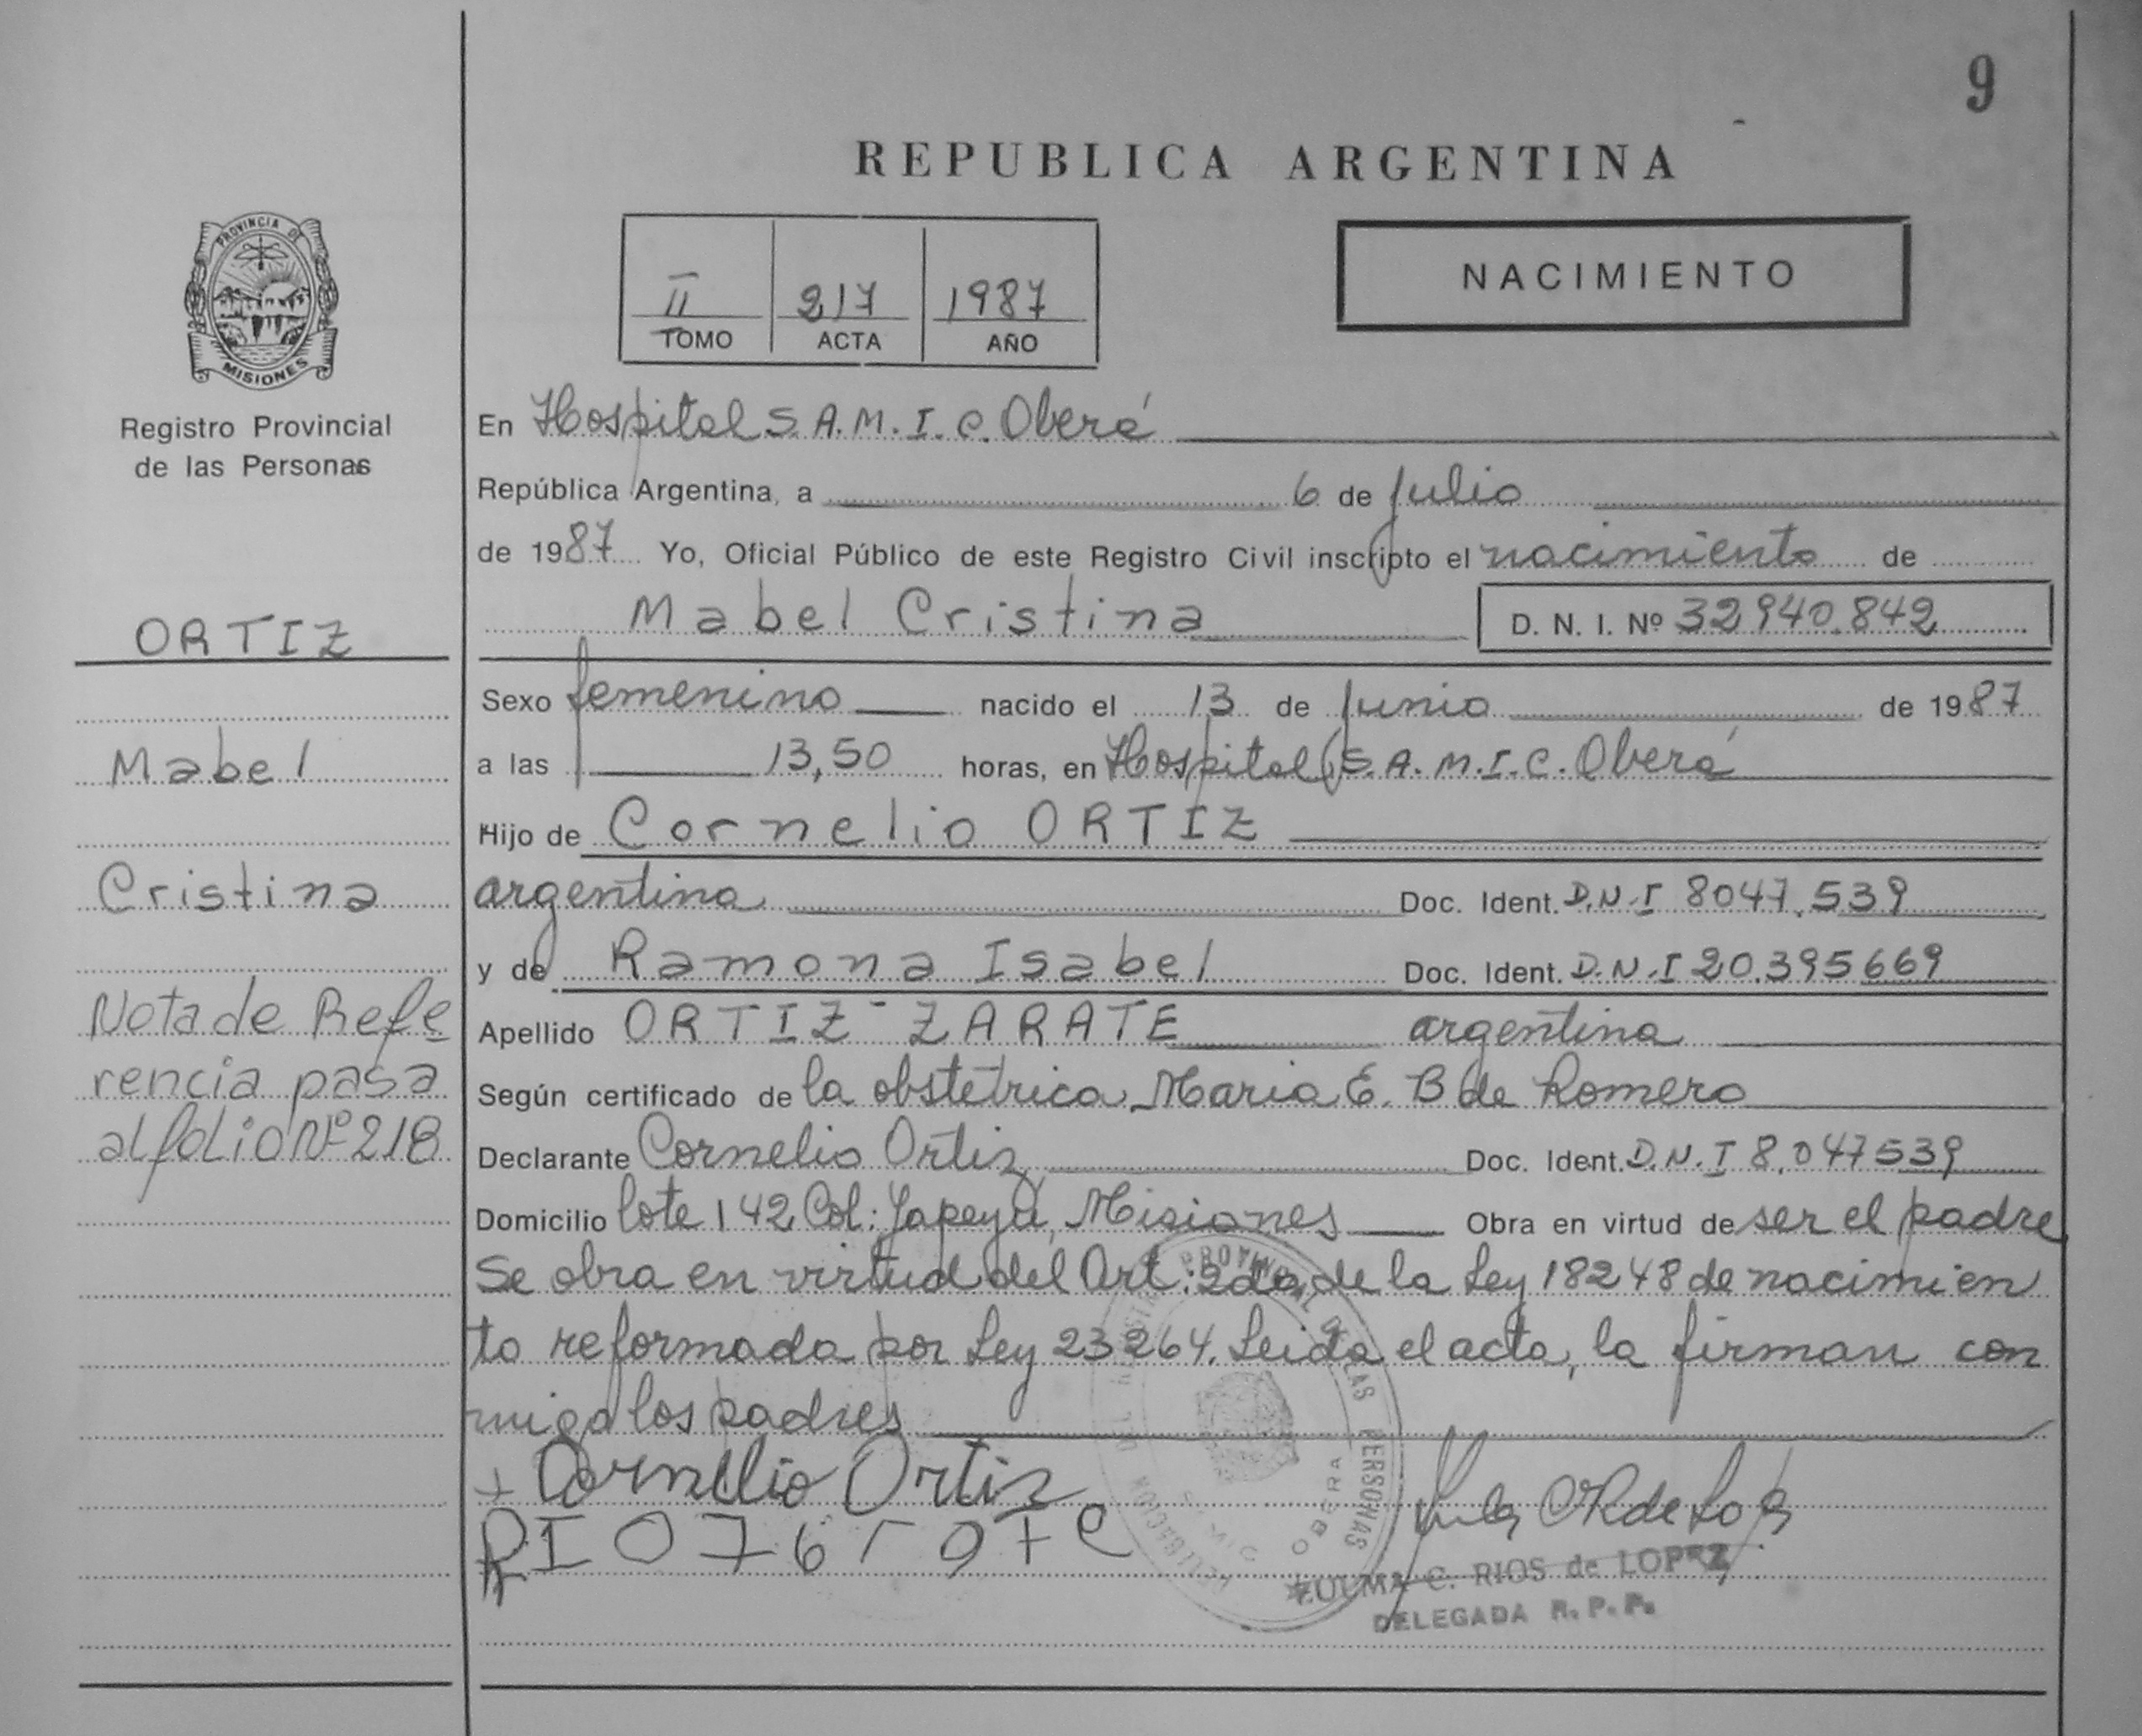 9
REPUBLICA ARGENTINA
PROVINCIA DE
MISIONES
Registro Provincial
de las Personas
II 217 1987
TOMO ACTA AÑO
NACIMIENTO
En Hospital S.A.M.I.C. Oberá
República Argentina, a 6 de Julio
de 1987 Yo, Oficial Público de este Registro Civil inscripto el nacimiento de
Mabel Cristina D. N. I. Nº 32940.842
ORTIZ
Mabel
Cristina
Nota de Refe
rencia pasa
al folio Nº 218
Sexo femenino nacido el 13 de Junio de 1987
a las 13,50 horas, en Hospital S.A.M.I.C. Oberá
Hijo de Cornelio ORTIZ
argentina Doc. Ident. D.N.I 8047.539
y de Ramona Isabel Doc. Ident. D.N.I 20.395669
Apellido ORTIZ - ZARATE argentina
Según certificado de la obstetrica Maria E. B de Romero
Declarante Cornelio Ortiz Doc. Ident. D.N.I 8.047539
Domicilio lote 142 Col: Yapeyú, Misiones Obra en virtud de ser el padre
Se obra en virtud del Art: 2do de la Ley 18248 de nacimien
to reformada por Ley 23264. Leida el acta, la firman con
migo los padres
Cornelio Ortiz
PROVINCIAL DE LAS PERSONAS
OBERA
ZULMA C. RIOS de LOPEZ
DELEGADA R. P. P.